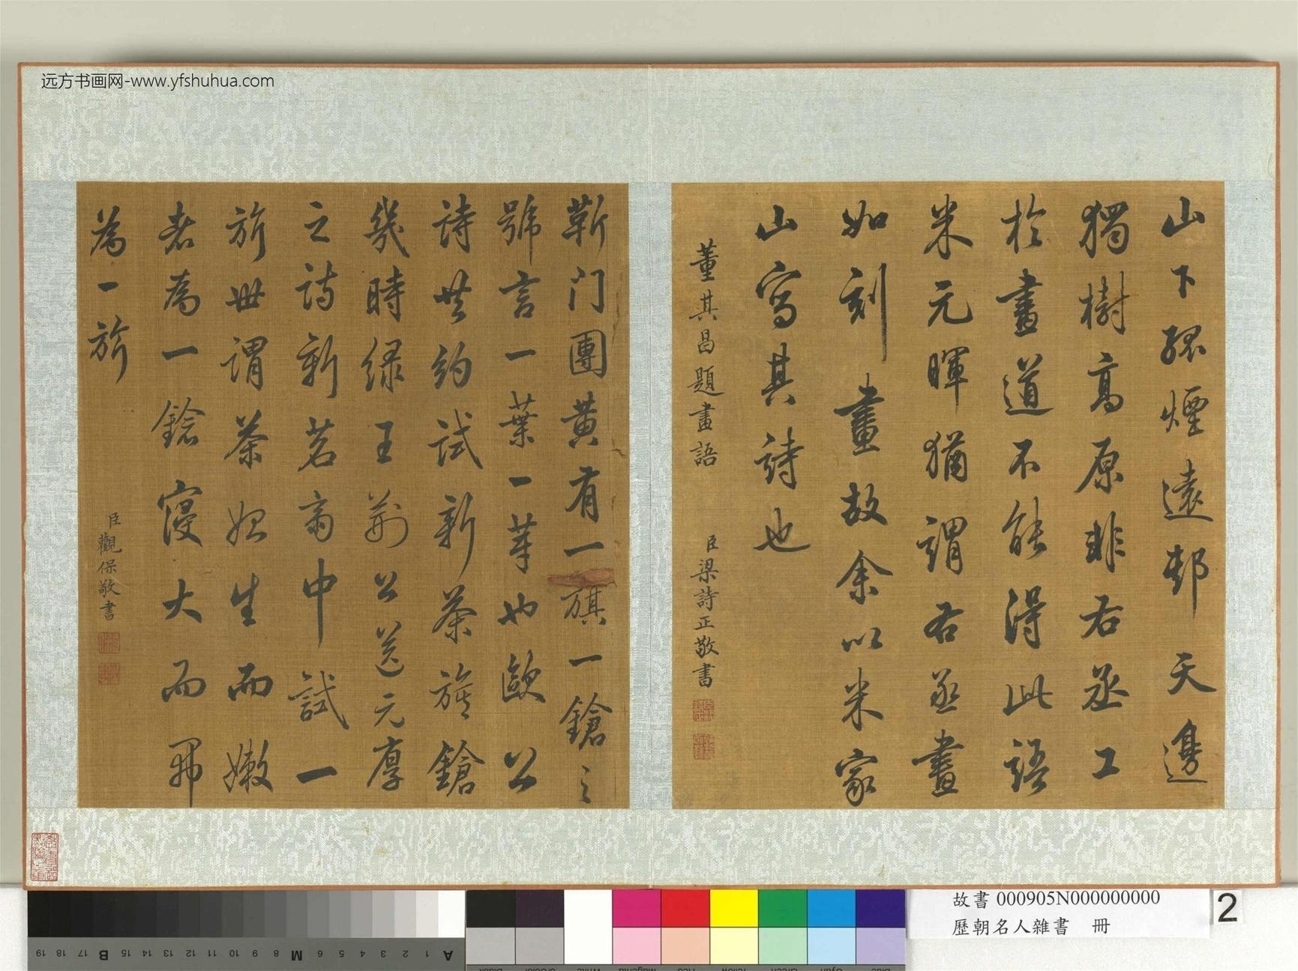 远方书画网-www.yfshuhua.com
山下孤煙遠邨天邊
獨樹高原非右丞工
於畫道不能得此語
米元暉猶謂右丞畫
如刻畫故余以米家
山寫其詩也
董其昌題畫語
臣梁詩正敬書
蘄门團黄有一旗一鎗之
號言一葉一芽也歐公
詩共約試新茶旗鎗
幾時绿王荆公送元厚
之詩新茗齋中試一
旂世謂茶始生而嫩
者為一鎗寖大而開
為一旂
臣觀保敬書
故書 000905N000000000
歷朝名人雜書 冊
2